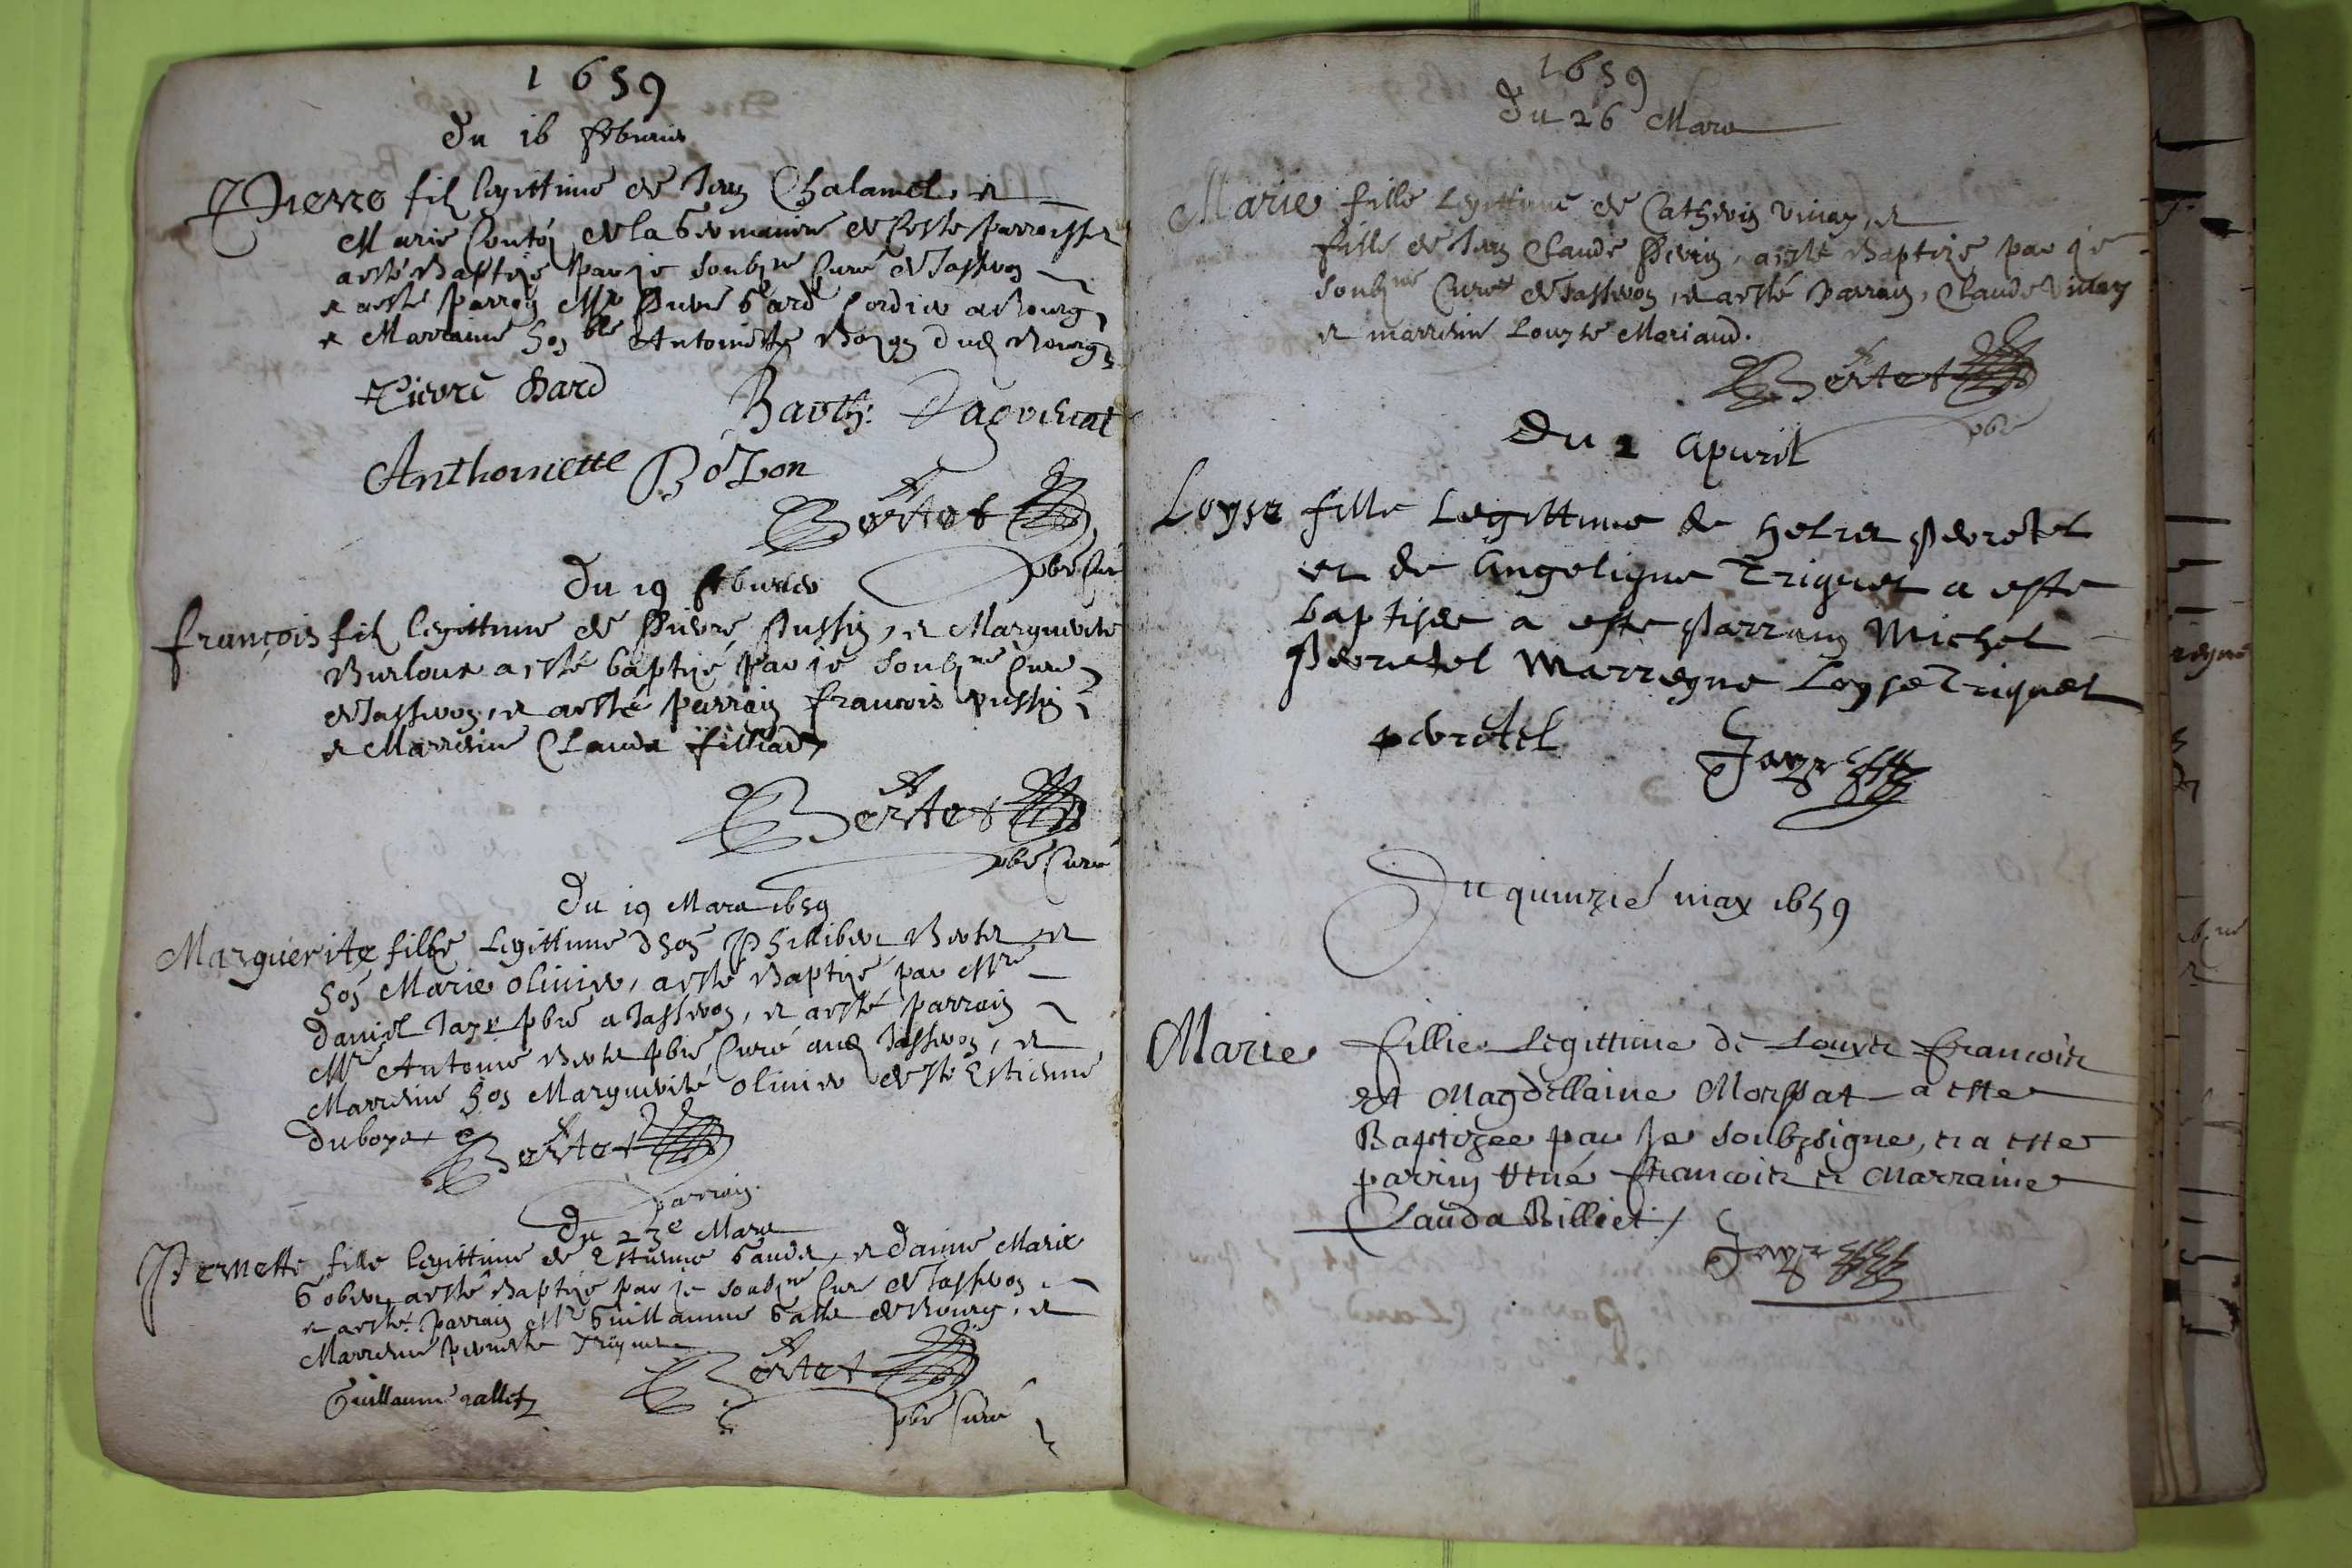 1659
Du 16 febvrier
Pierre fil legittime de Jean Chalamel et
Marie de la de ceste parroisse
a esté Baptizé par je soubz.né Curé de Jasseron
et a esté parrain M.r Pierre Gard Cordier a Bourg
et Marraine hon.ble Antoinette Bozon dud Bourg
Pierre Gard
Barth:
Anthoinette Bozon
ABertet
pbre Curé
Du 19 febvrier
françois fil legittime de Pierre Pussin, et Marguerite
a esté baptizé par je soubz.né Curé
de Jasseron, et a esté parrain francois pussin
et Marreine Clauda filliard
ABertet
pbre Curé
Du 19 Mars 1659
Marguerite fille Legittime d'hon Phillibert Bertet et
hon Marie olivier, a esté Baptizé par M.re
Daniel Jaze pbre a Jasseron, et a esté parrain
M.re Antoine Bertet pbre Curé aud Jasseron, et
Marreine hon Marguerite olivier de St Estienne
du boys
ABertet
parrain.
Du 23e Mars
Pernette fille legittime de Estienne et Danne Marie
Gobert a esté Baptizé par je soubz.né Curé de Jasseron
et a esté parrain M.r Guillaume Gallet de Bourg, et
Marreine pernette Triquet
Guillaume gallet
ABertet
pbre Curé
1659
Du 26 Mars
Marie fille Legittime de Catherin Vinay, et
fille de Jean Claude Perrin, a esté Baptizé par je
soubz.né Curé de Jasseron, et a esté Parrain, Claude Vinay
et marreine Louyse Moriaud.
ABertet
pbre
Du 2 apvril
Loyse fille Legittime de Perretel
et de Angeligue Triquet a este
baptisee a este parrain Michel
Perretel Marregne Loyse Triquet
perretel
Jaze
Du quinzie may 1659
Marie fillie Legittime de Louys francois
et Magdellaine Morssat a este
Baptizee par Je soubzsigne, et a este
parrin francois et Marraine
Clauda Billiet /
Jaze